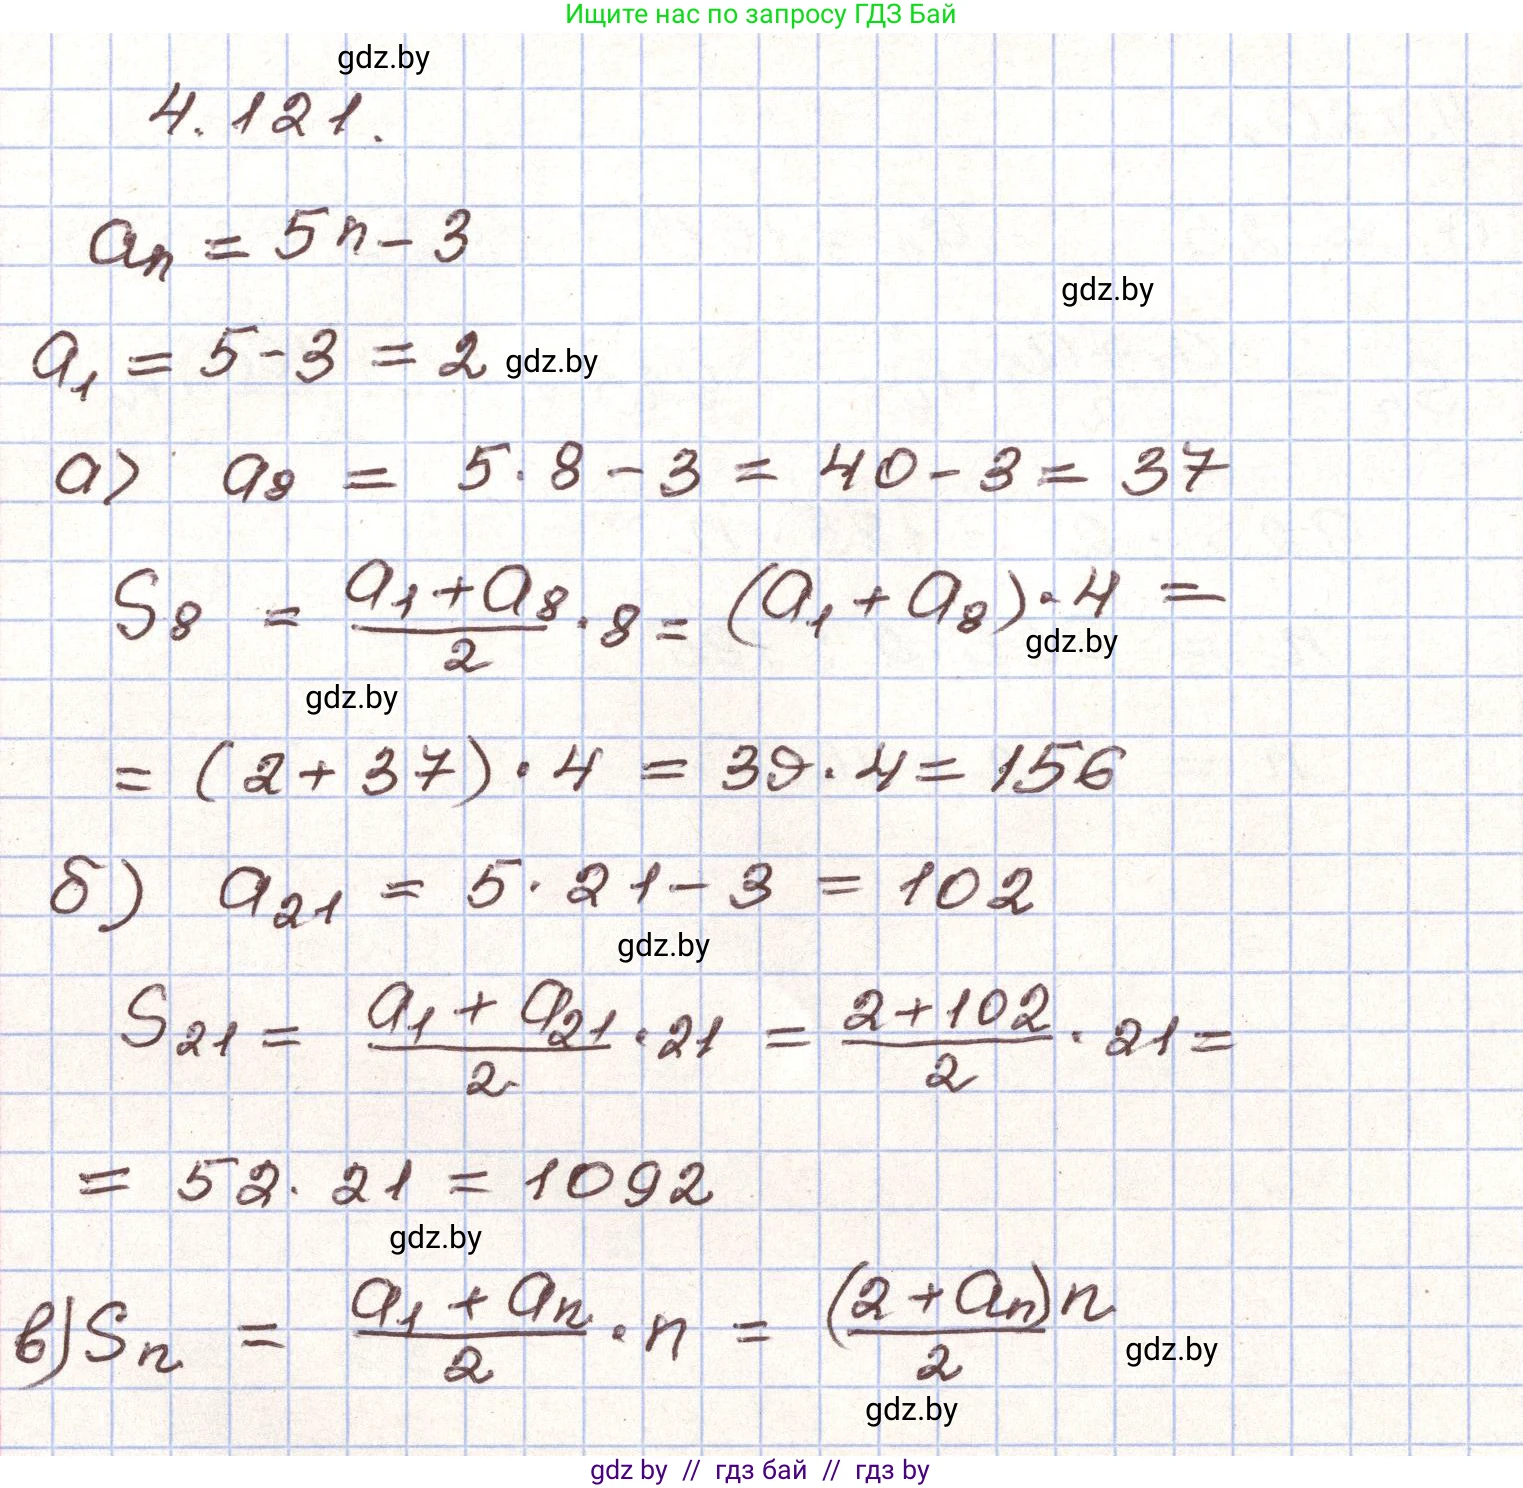 Ищите нас по запросу ГДЗ Бай
gdz.by
4.121.
aₙ = 5n - 3
gdz.by
a₁ = 5 - 3 = 2 gdz.by
а) a₈ = 5·8 - 3 = 40 - 3 = 37
S₈ = (a₁ + a₈)/2 · 8 = (a₁ + a₈)·4 =
gdz.by
gdz.by
= (2 + 37)·4 = 39·4 = 156
б) a₂₁ = 5·21 - 3 = 102
gdz.by
S₂₁ = (a₁ + a₂₁)/2 · 21 = (2 + 102)/2 · 21 =
= 52·21 = 1092
gdz.by
в) Sₙ = (a₁ + aₙ)/2 · n = (2 + aₙ)n/2
gdz.by
gdz.by
gdz by // гдз бай // гдз by